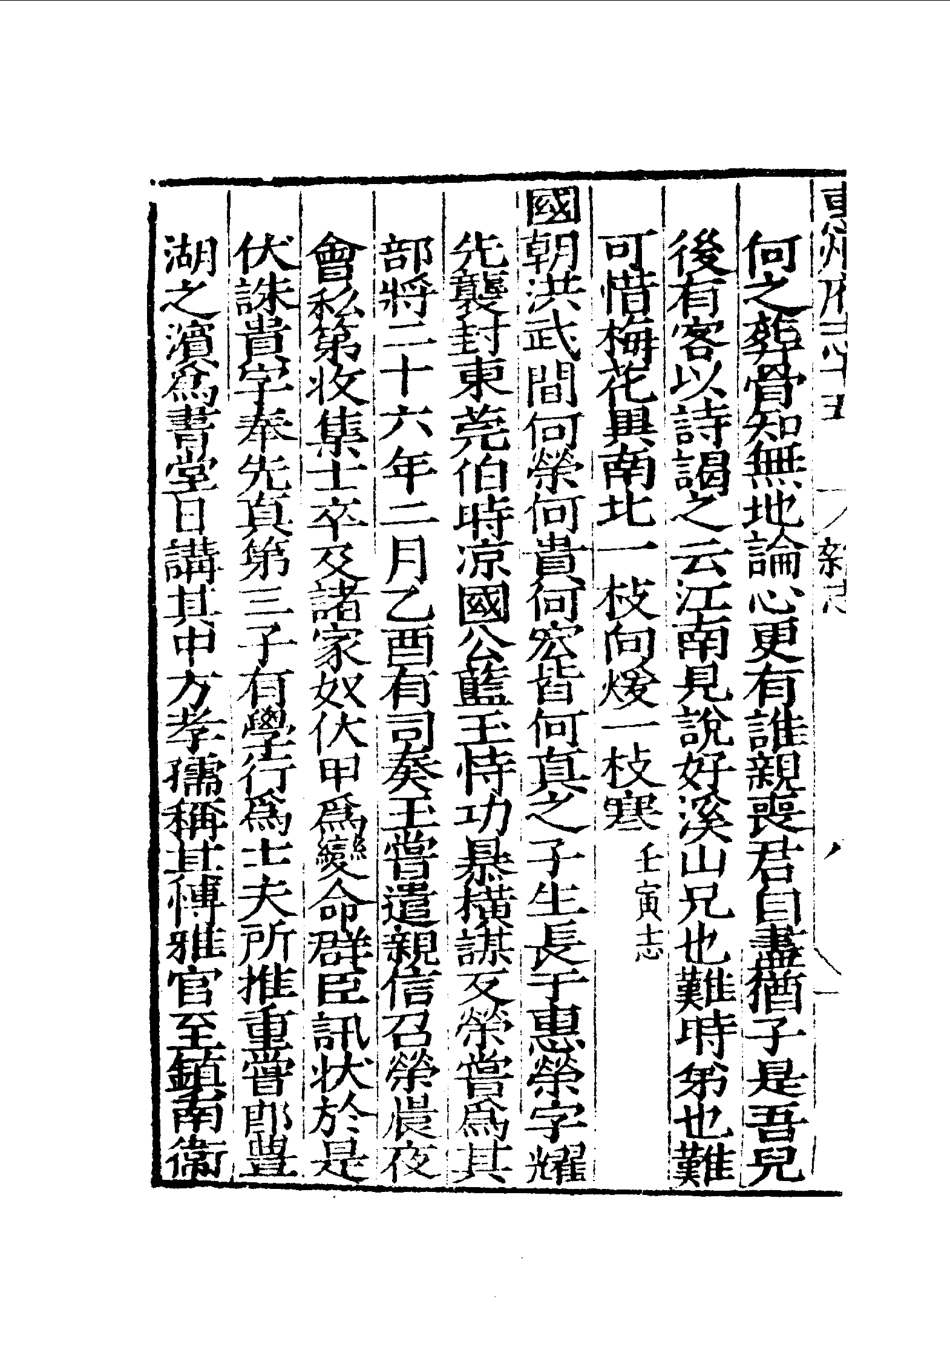 惠州府志十五
雜志
何之葬骨知無地論心更有誰親喪君自盡猶子是吾兒
後有客以詩謁之云江南見說好溪山兄也難時弟也難
可惜梅花興南北一枝向煖一枝寒 壬寅志
國朝洪武間何榮何貴何宏皆何真之子生長于惠榮字耀
先襲封東莞伯時凉國公藍玉恃功㬥橫謀反榮嘗爲其
部將二十六年二月乙酉有司奏玉嘗遣親信召榮晨夜
會私第收集士卒及諸家奴伏甲爲變命群臣訊状於是
伏誅貴字奉先真第三子有學行爲士夫所推重嘗即豊
湖之濵爲書堂日講其中方孝孺稱其愽雅官至鎮南衞